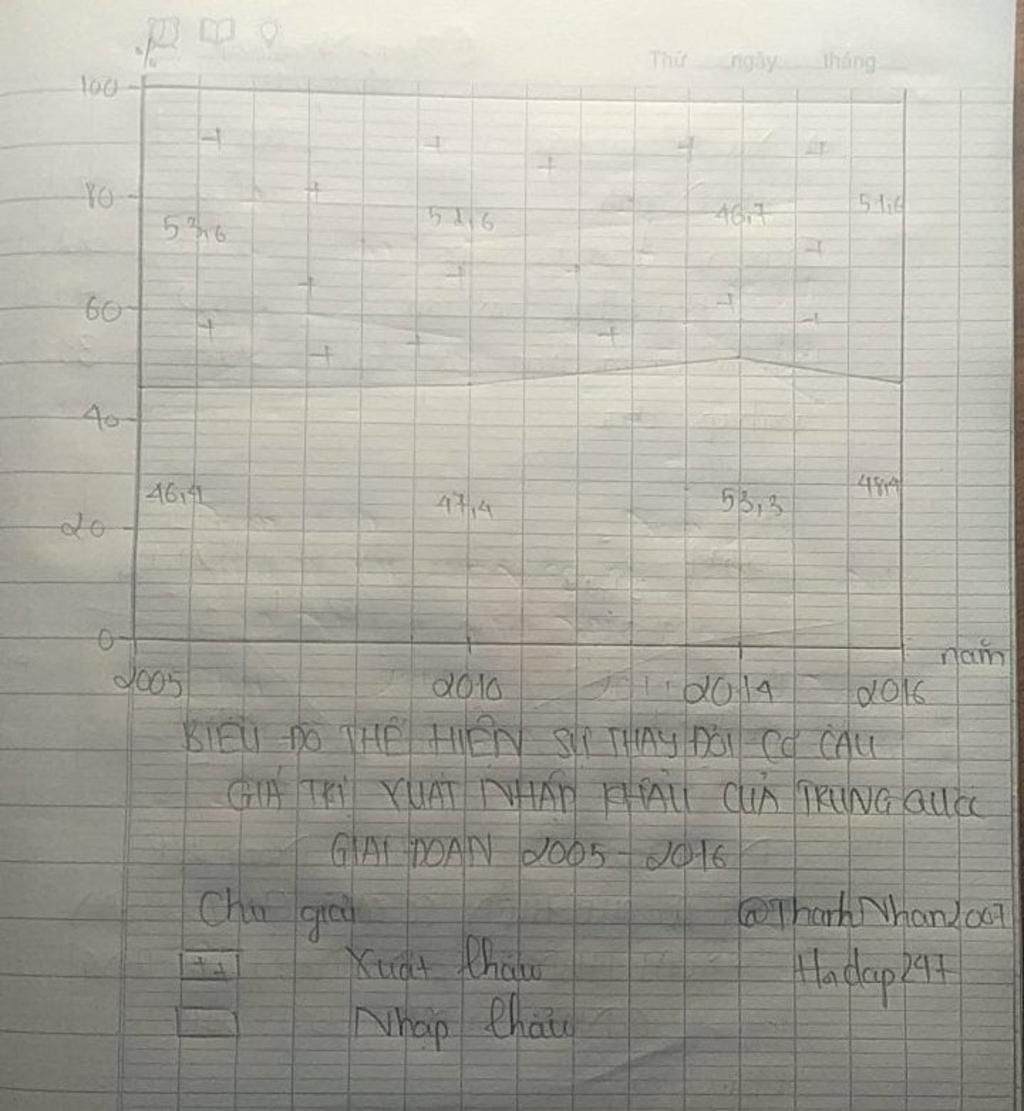 Thứ ngày tháng
100
80
53,6 51,6 46,7 51,6
60
40
46,4 47,4 53,3 48,4
20
0
năm
2005 2010 2014 2016
BIỂU ĐỒ THỂ HIỆN SỰ THAY ĐỔI CƠ CẤU
GIÁ TRỊ XUẤT NHẬP KHẨU CỦA TRUNG QUỐC
GIAI ĐOẠN 2005-2016
Chú giải @ThanhNhan2007
Xuất khẩu Hodap247
Nhập khẩu